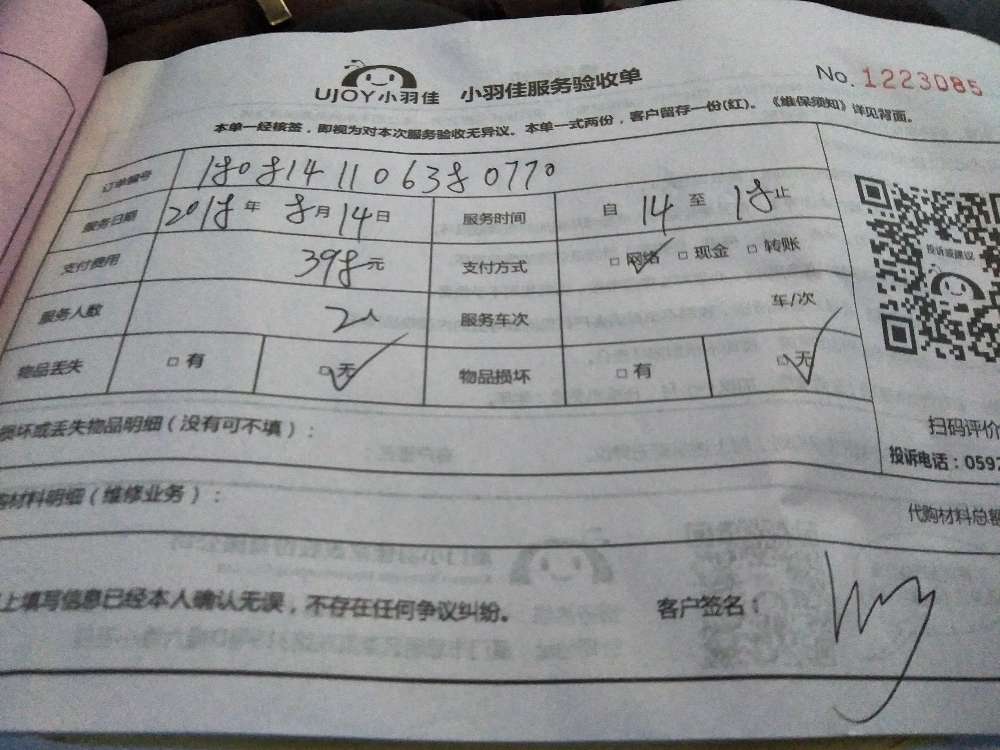 UJOY小羽佳 小羽佳服务验收单 No.1223085
本单一经核签，即视为对本次服务验收无异议。本单一式两份，客户留存一份(红)。《维保须知》详见背面。
订单编号 1808141106380770
服务日期 2018年 8月14日 服务时间 自 14 至 18止
支付费用 398元 支付方式 □网络 □现金 □转账
服务人数 2人 服务车次 车/次
物品丢失 □有 □无 物品损坏 □有 □无
投诉或建议
扫码评价
投诉电话：0592
损坏或丢失物品明细（没有可不填）：
购材料明细（维修业务）： 代购材料总额
上填写信息已经本人确认无误，不存在任何争议纠纷。 客户签名：